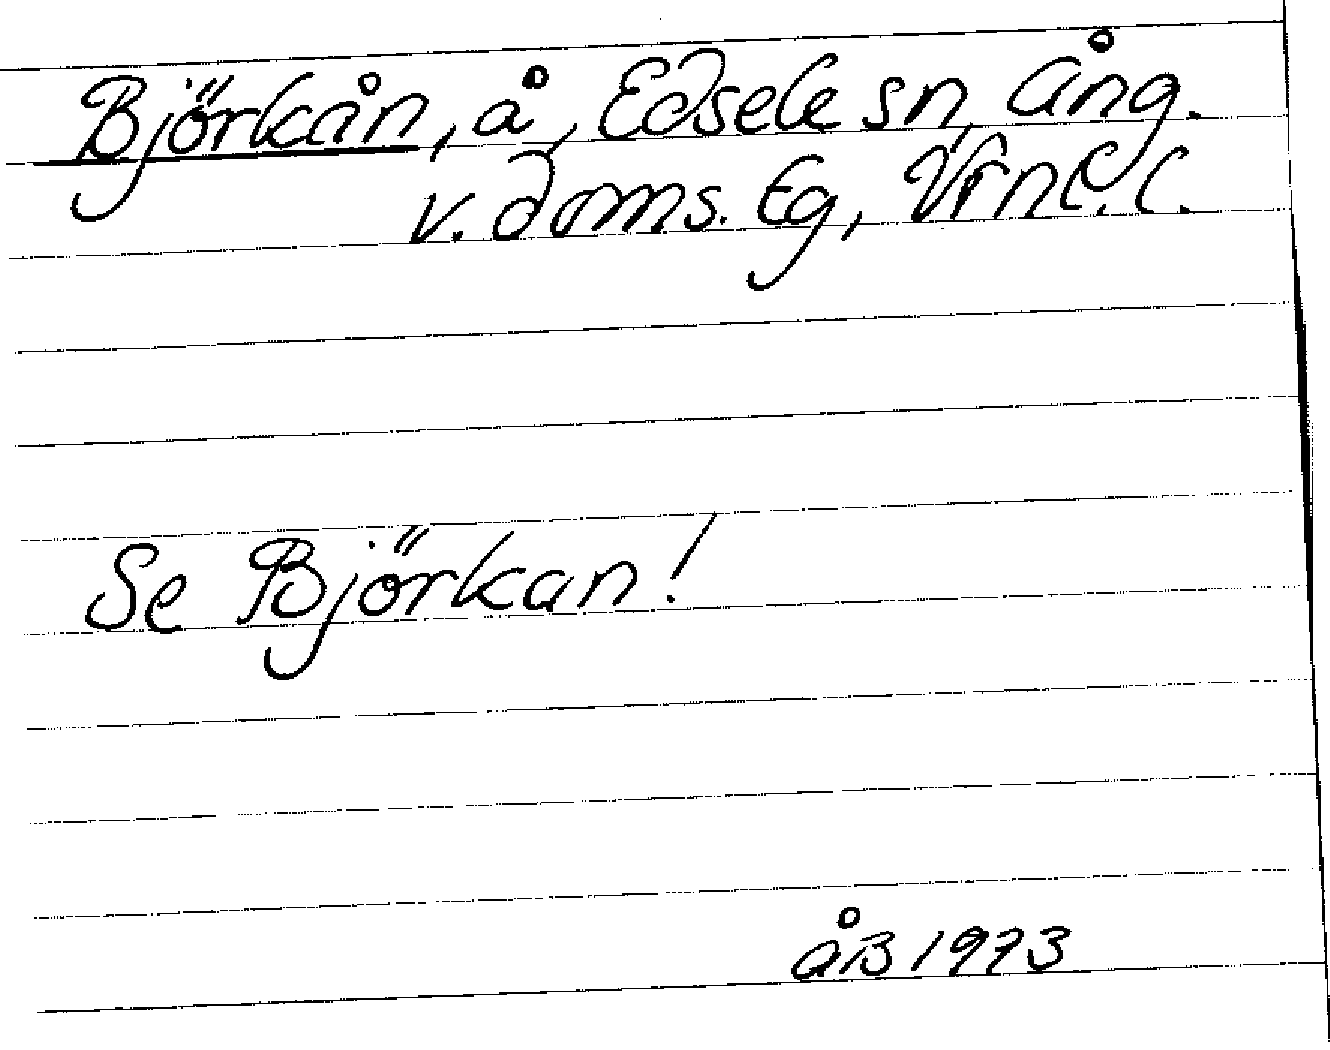 Björkån, å, Edsele sn, Ång.
v. doms. Eg, Vrnl.l.
Se Björkan!
ÅB 1973